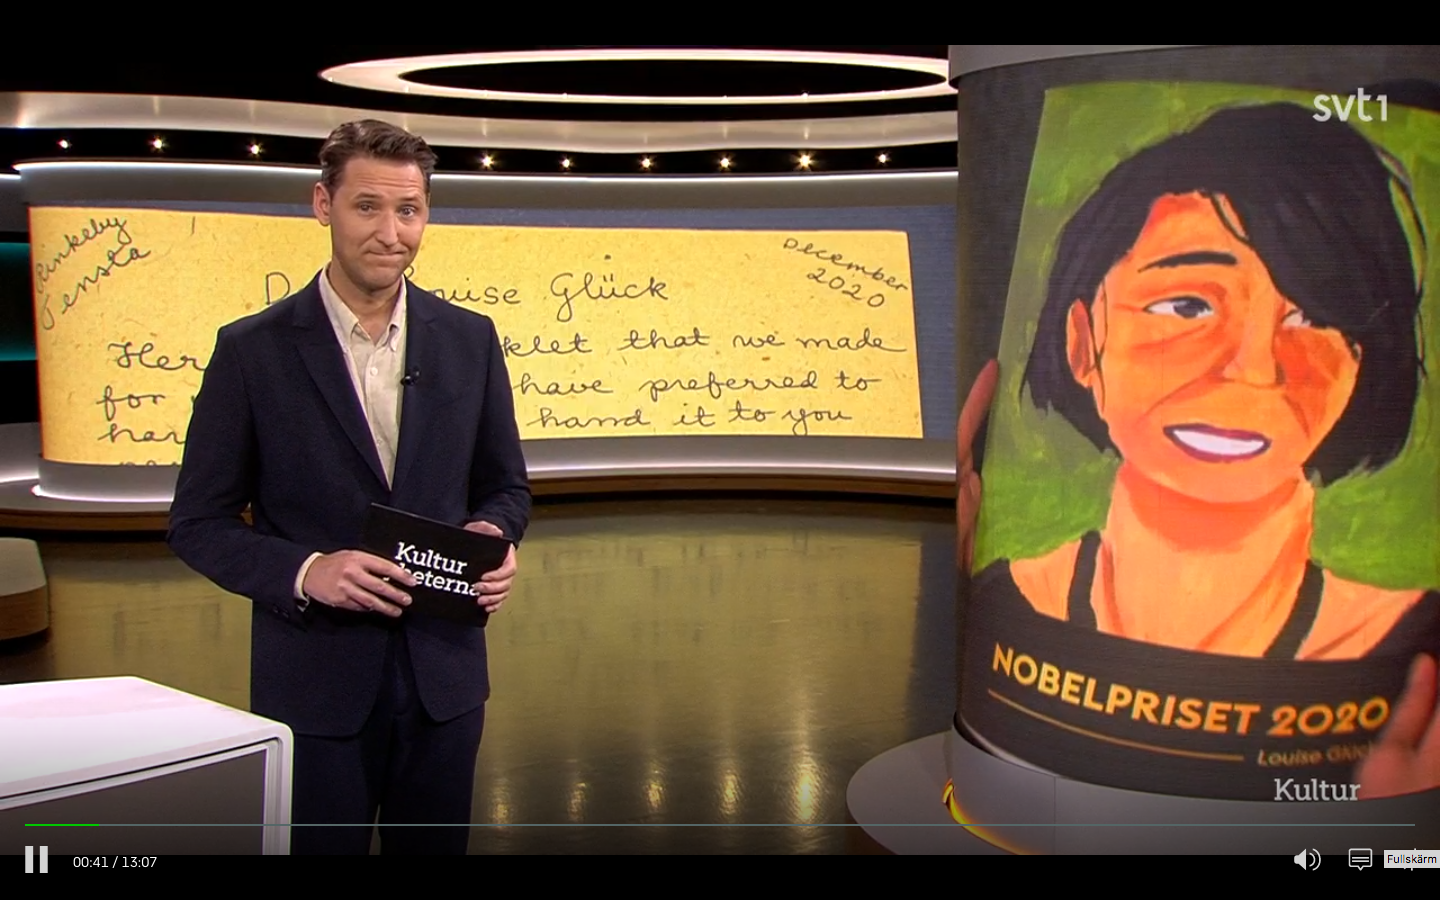 svt1
Rinkeby
Tensta
December
2020
Louise Glück
that we made
for have preferred to
hand it to you
Kultur
NOBELPRISET 2020
Louise Glück
Kultur
00:41 / 13:07
Fullskärm